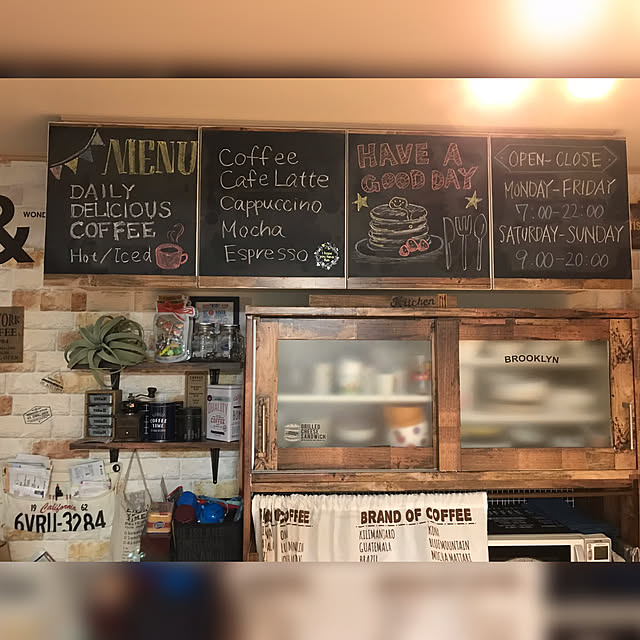 MENU
DAILY
DELICIOUS
COFFEE
Hot/Iced
Coffee
Cafe Latte
Cappuccino
Mocha
Espresso
HAVE A
GOOD DAY
OPEN-CLOSE
MONDAY-FRIDAY
7:00-22:00
SATURDAY-SUNDAY
9:00-20:00
&
WOND
Kitchen
BROOKLYN
GRILLED
CHEESE
SANDWICH
COFFEE
19 California 62
6VRII-3284
COFFEE
BRAND OF COFFEE
KILIMANJARO
GUATEMALA
BRAZIL
KONA
BLUE MOUNTAIN
MOCHA MATTARI